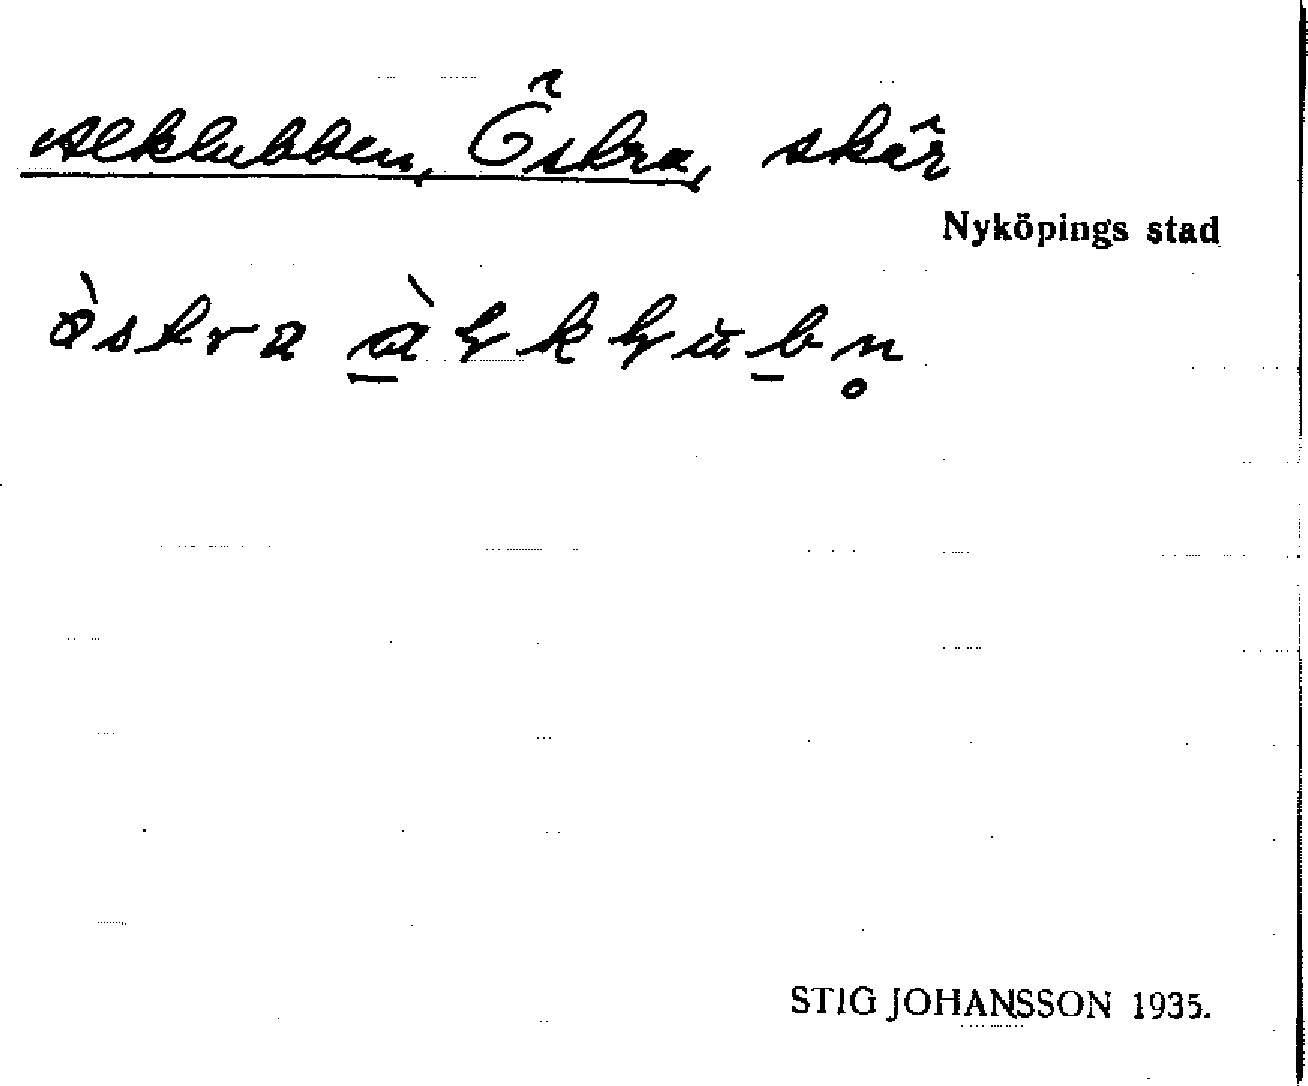 Alklubben, Östra, skär
Nyköpings stad
STIG JOHANSSON 1935.